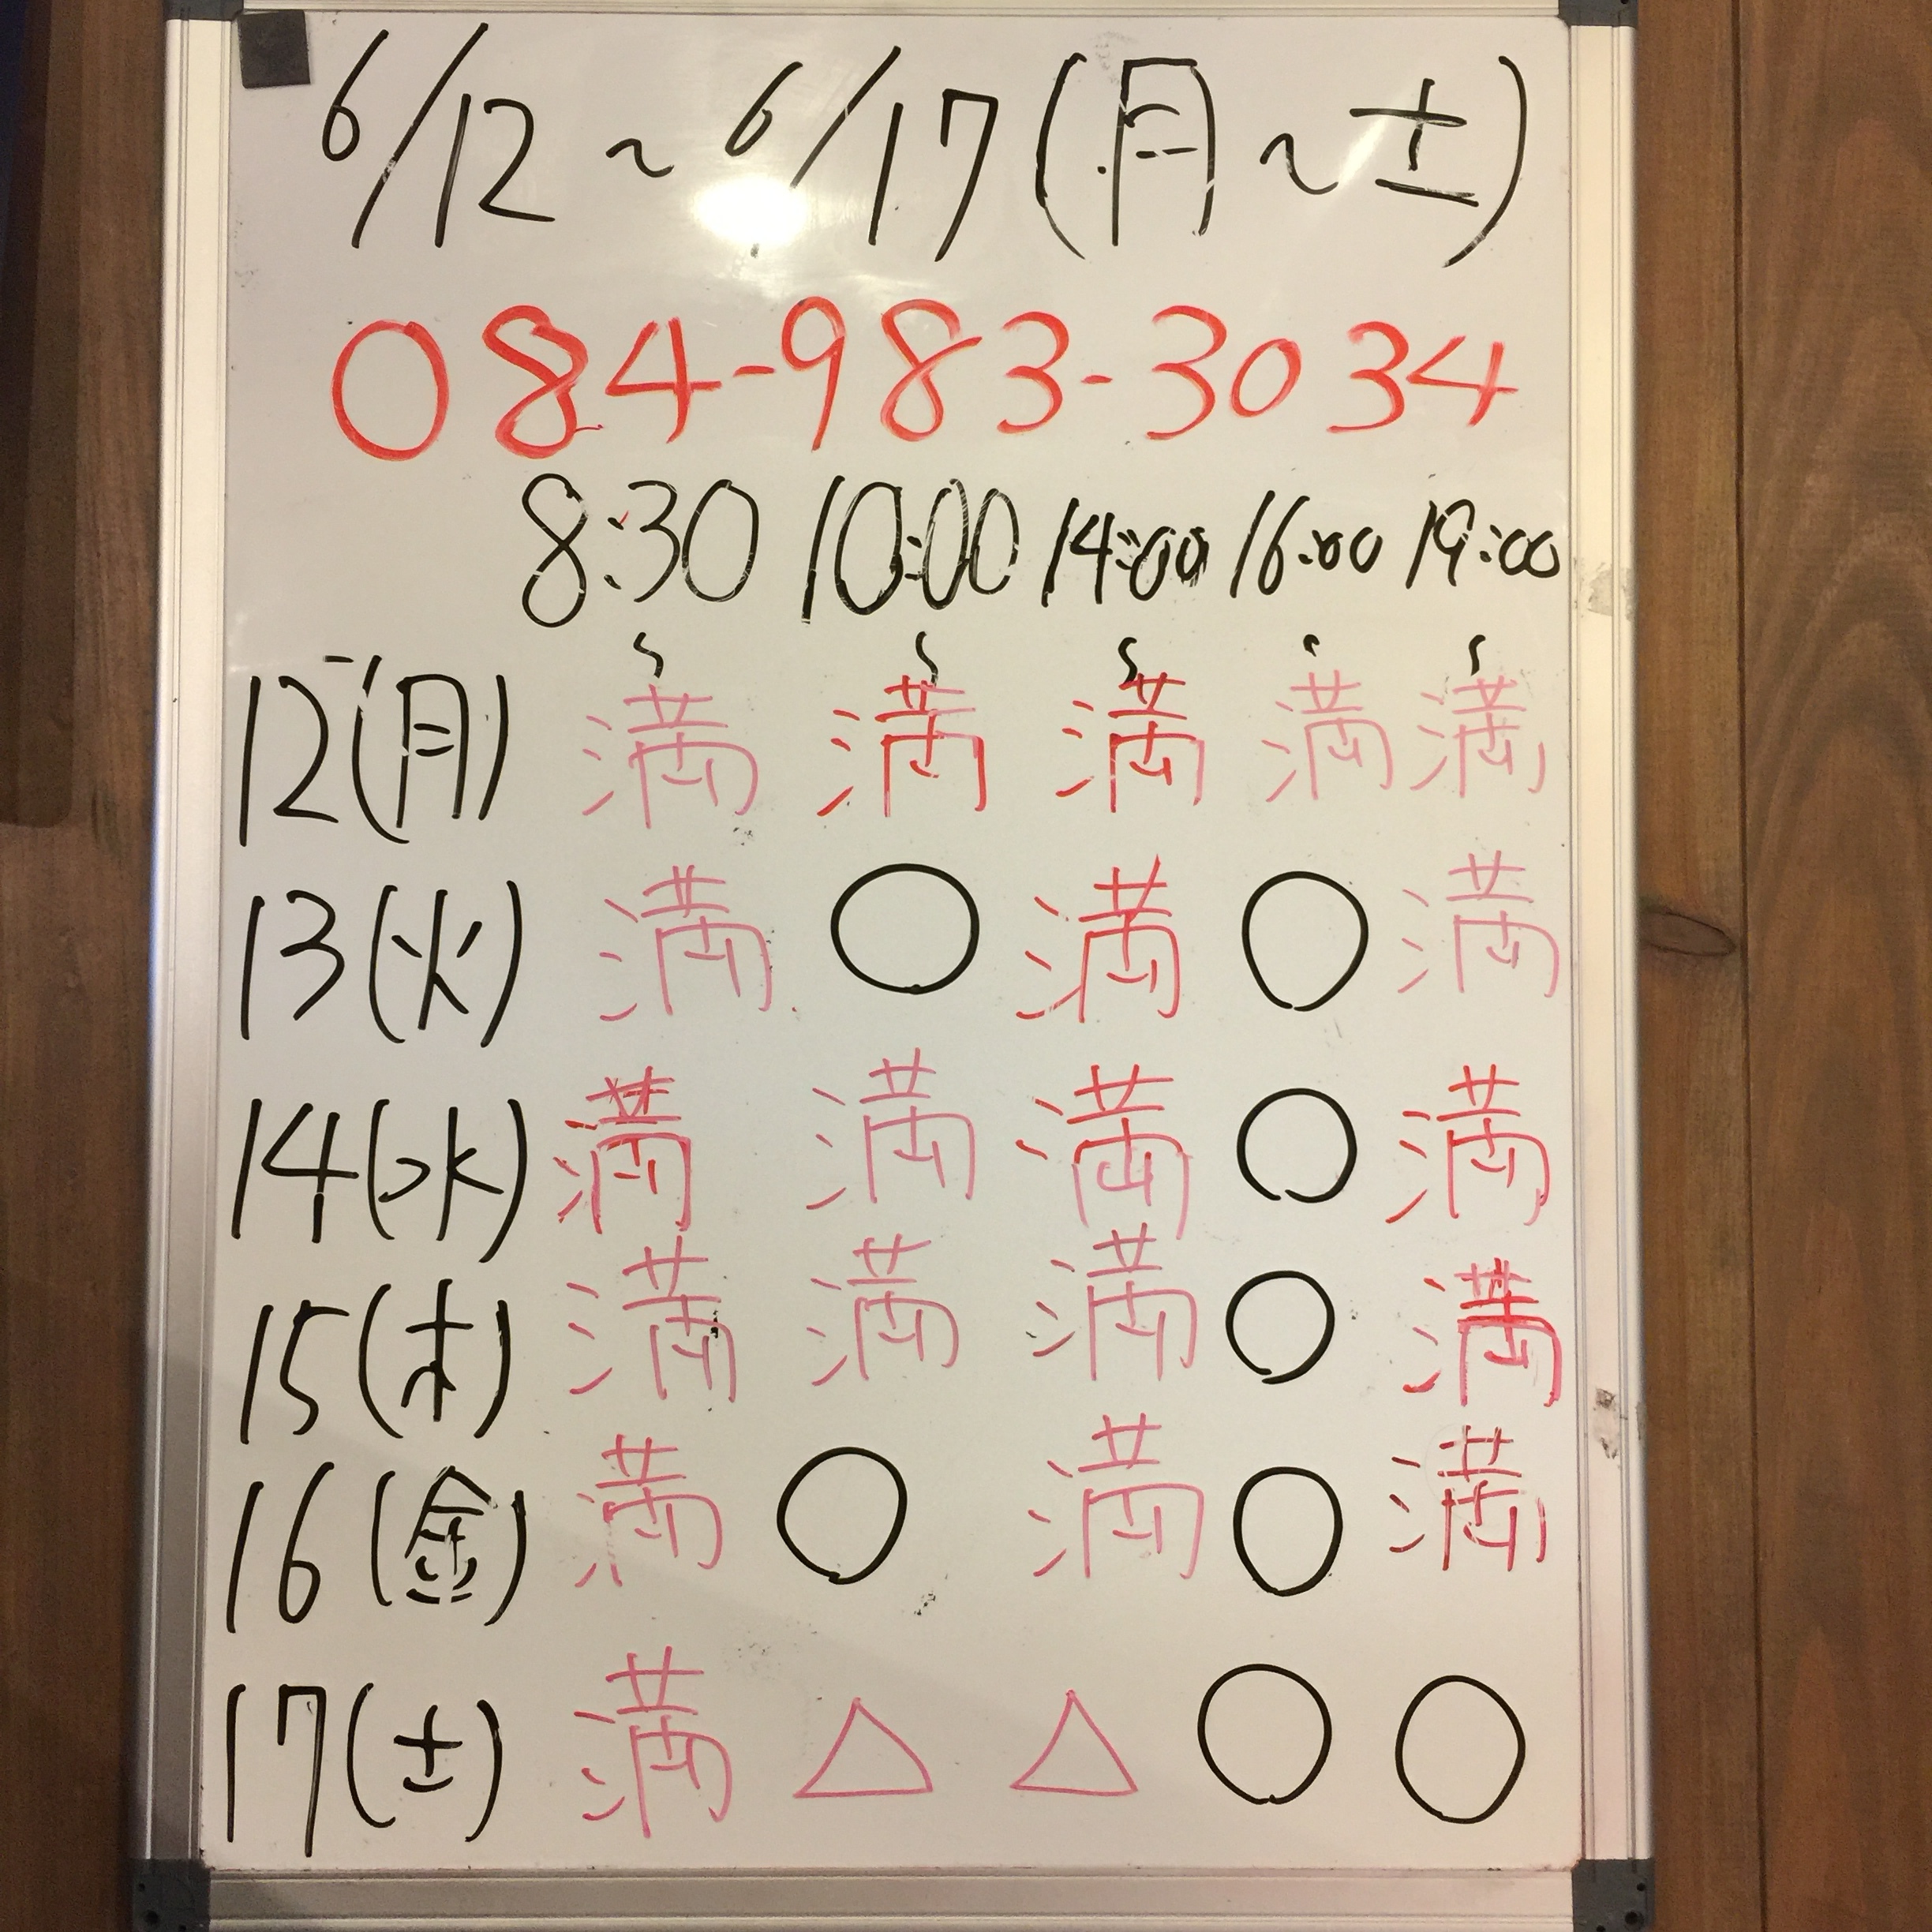 6/12~6/17(月~土)
084-983-3034
8:30 10:00 14:00 16:00 19:00
~ ~ ~ ~ ~
12(月) 満 満 満 満 満
13(火) 満 ○ 満 ○ 満
14(水) 満 満 満 ○ 満
15(木) 満 満 満 ○ 満
16(金) 満 ○ 満 ○ 満
17(土) 満 △ △ ○ ○